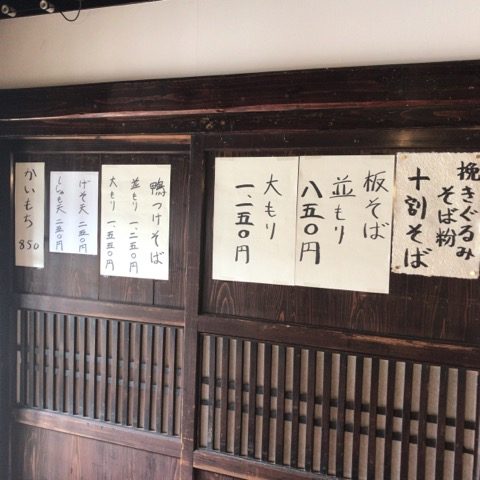 挽きぐるみ
そば粉
十割そば
板そば
並もり
八五〇円
大もり
一、一五〇円
鴨つけそば
並もり 一、二五〇円
大もり 一、五五〇円
げそ天 二五〇円
二五〇円
かいもち
850